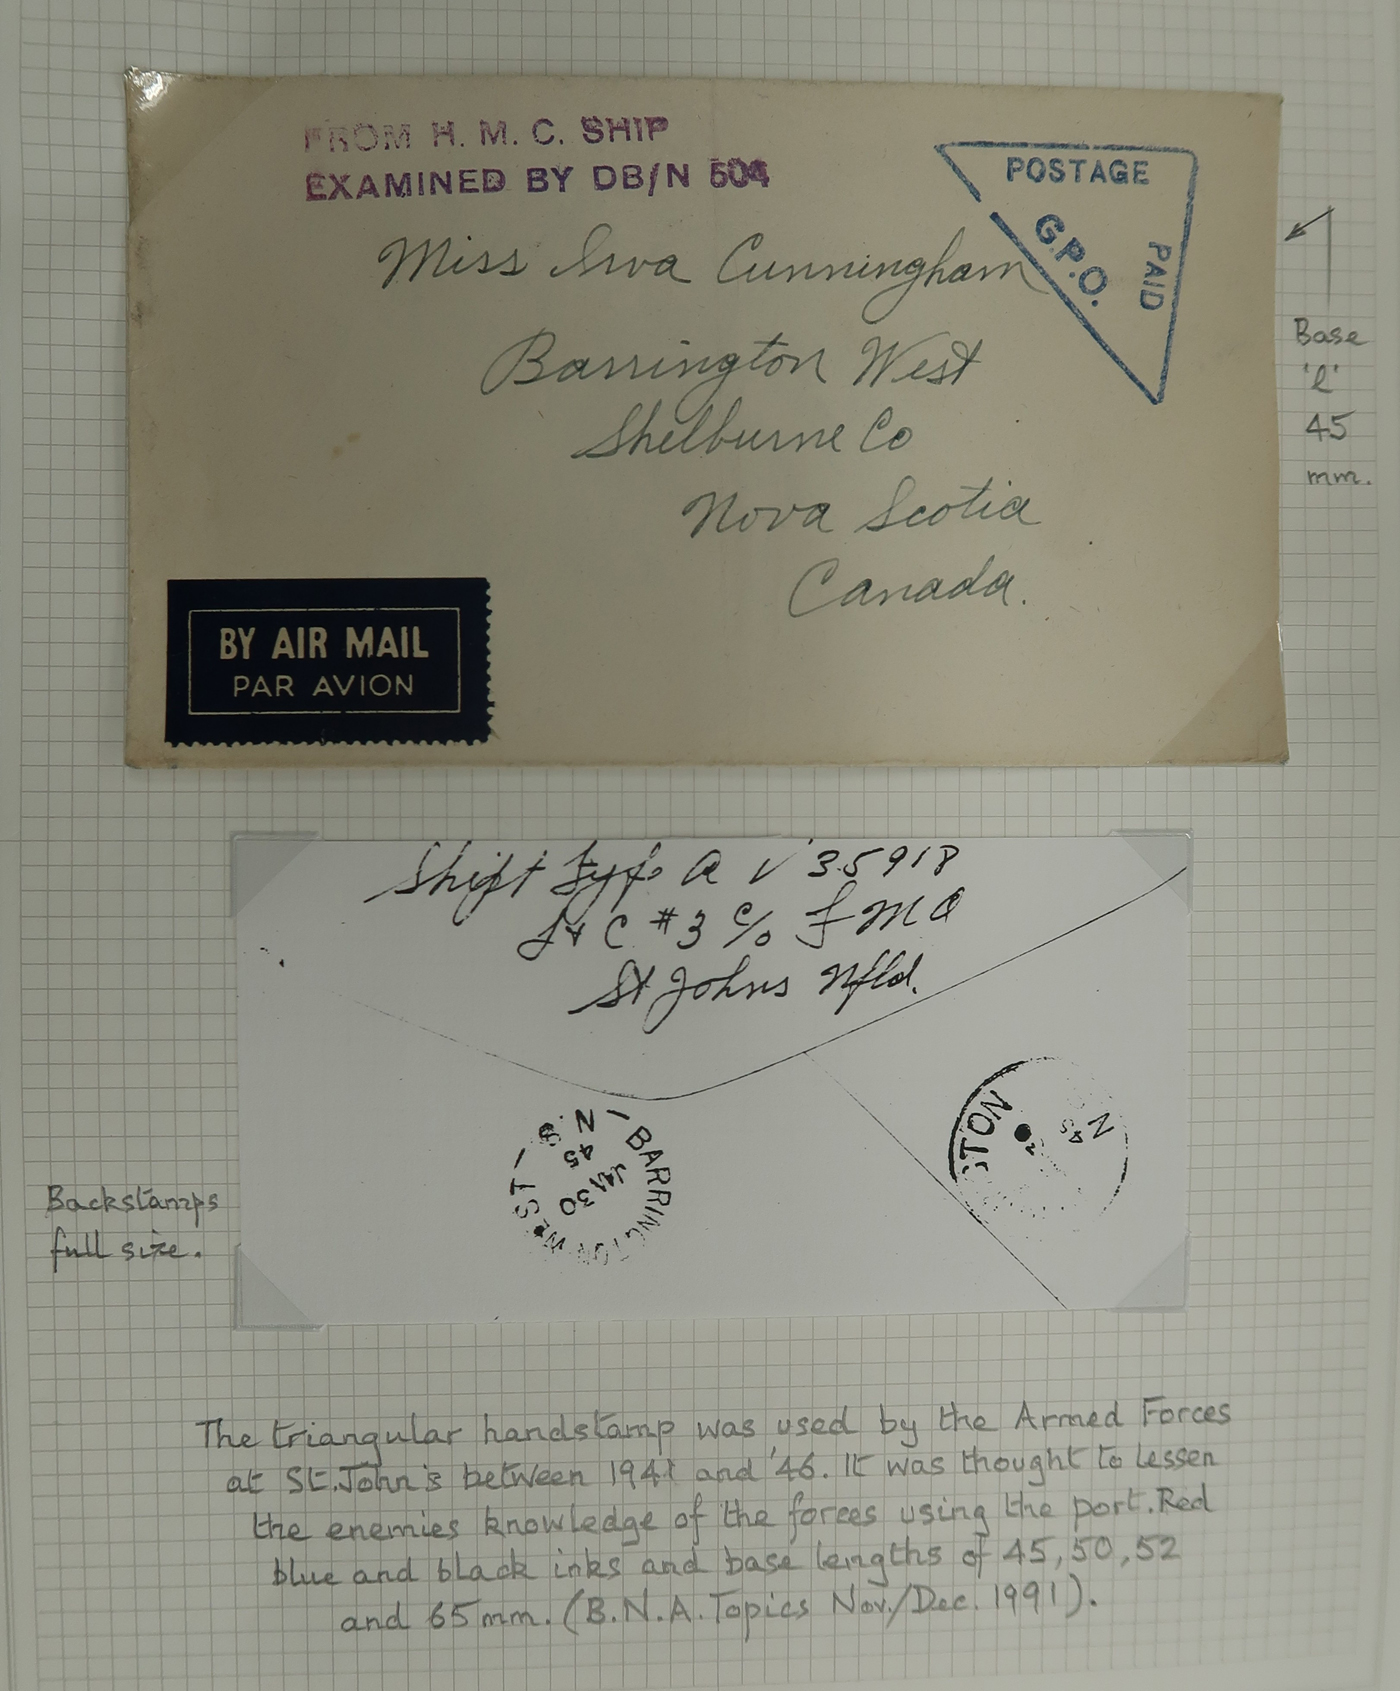 FROM H. M. C. SHIP
EXAMINED BY DB/N 504
POSTAGE
PAID
G.P.O.
Miss Iva Cunningham
Barrington West
Shelburne Co
Nova Scotia
Canada.
BY AIR MAIL
PAR AVION
Base
'l'
45
mm.
V 35918
C #3 c/o FMO
St Johns Nfld.
BARRINGTON WEST
JA 30
45
N.S.
TON
45
N
Backstamps
full size.
The triangular handstamp was used by the Armed Forces
at St. John's between 1941 and '46. It was thought to lessen
the enemies knowledge of the forces using the port. Red
blue and black inks and base lengths of 45, 50, 52
and 65mm. (B.N.A. Topics Nov./Dec. 1991).